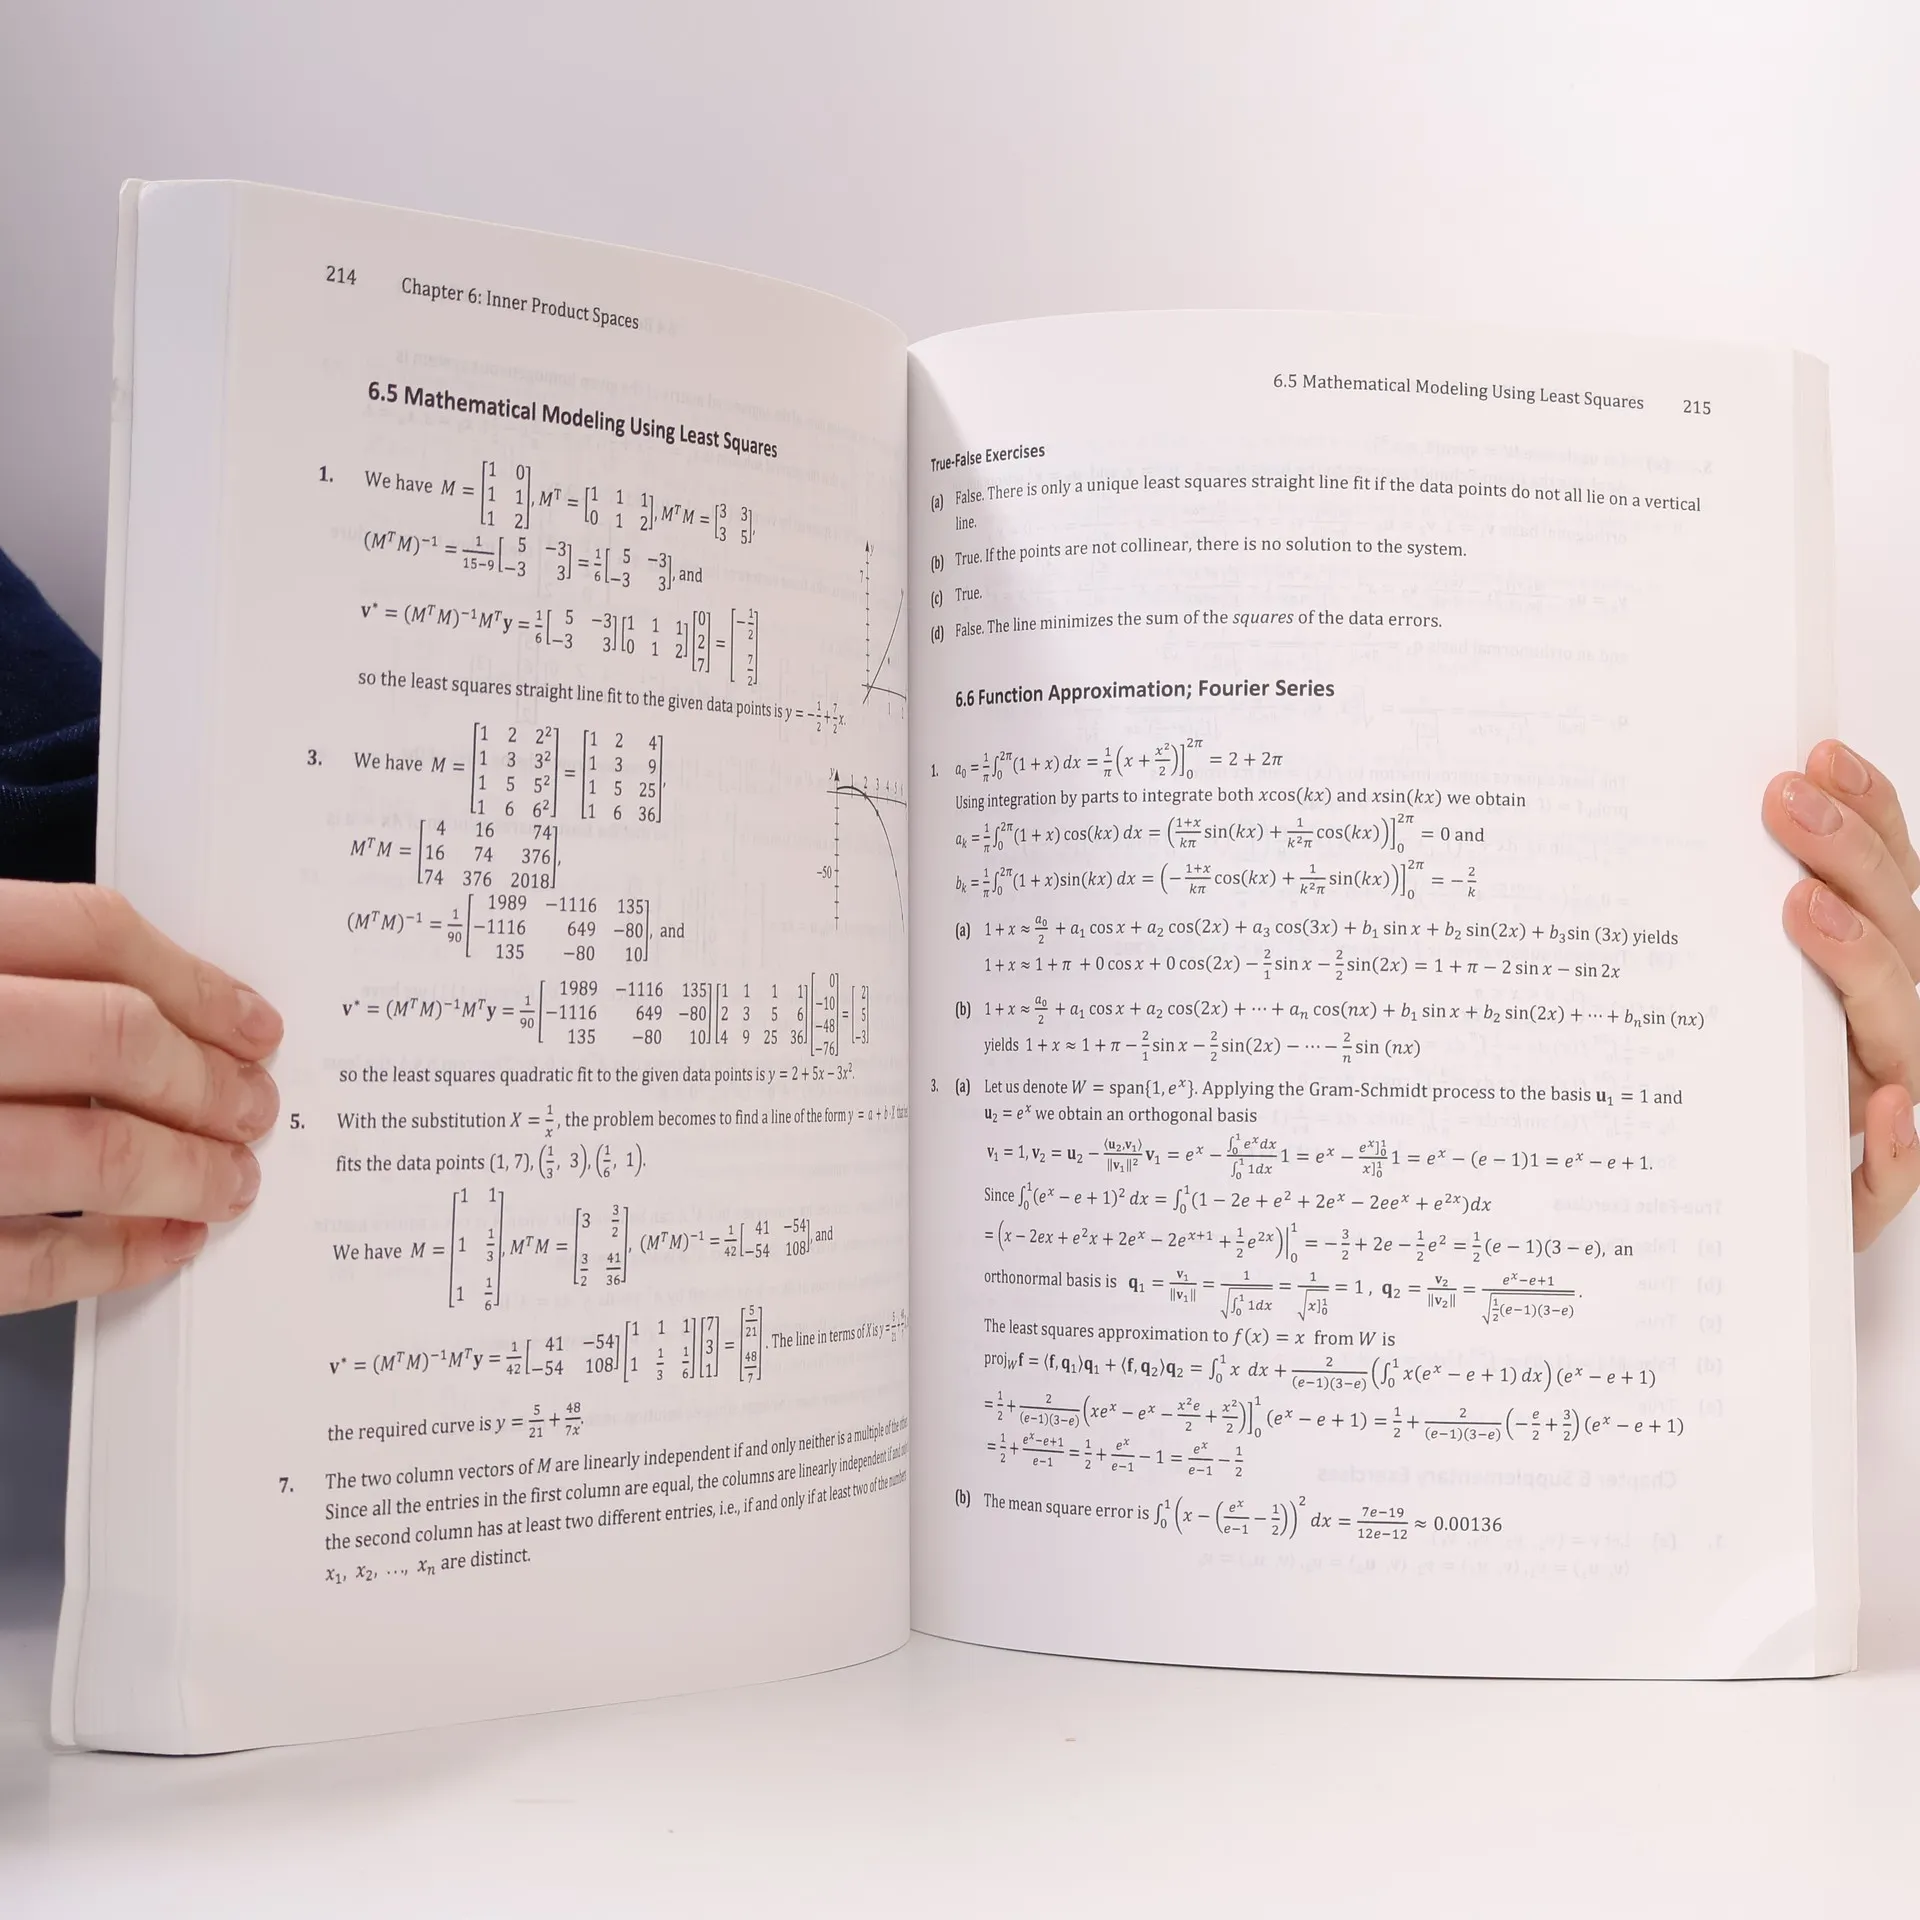 214 Chapter 6: Inner Product Spaces
6.5 Mathematical Modeling Using Least Squares
1. We have M = [1 0; 1 1; 1 2], Mᵀ = [1 1 1; 0 1 2], MᵀM = [3 3; 3 5],
(MᵀM)⁻¹ = 1/(15−9) [5 −3; −3 3] = 1/6 [5 −3; −3 3], and
v* = (MᵀM)⁻¹Mᵀy = 1/6 [5 −3; −3 3] [1 1 1; 0 1 2] [0; 2; 7] = [−1/2; 7/2]
so the least squares straight line fit to the given data points is y = −1/2 + 7/2 x.
y
7
1
3. We have M = [1 2 2²; 1 3 3²; 1 5 5²; 1 6 6²] = [1 2 4; 1 3 9; 1 5 25; 1 6 36],
MᵀM = [4 16 74; 16 74 376; 74 376 2018],
(MᵀM)⁻¹ = 1/90 [1989 −1116 135; −1116 649 −80; 135 −80 10], and
v* = (MᵀM)⁻¹Mᵀy = 1/90 [1989 −1116 135; −1116 649 −80; 135 −80 10] [1 1 1 1; 2 3 5 6; 4 9 25 36] [0; −10; −48; −76] = [2; 5; −3]
so the least squares quadratic fit to the given data points is y = 2 + 5x − 3x².
y
1 2 3 4 5 6
−50
5. With the substitution X = 1/x, the problem becomes to find a line of the form y = a + b·X that
fits the data points (1, 7), (1/3, 3), (1/6, 1).
We have M = [1 1; 1 1/3; 1 1/6], MᵀM = [3 3/2; 3/2 41/36], (MᵀM)⁻¹ = 1/42 [41 −54; −54 108], and
v* = (MᵀM)⁻¹Mᵀy = 1/42 [41 −54; −54 108] [1 1 1; 1 1/3 1/6] [7; 3; 1] = [5/21; 48/7]. The line in terms of X is y = 5/21 +
the required curve is y = 5/21 + 48/7x.
7. The two column vectors of M are linearly independent if and only neither is a multiple of the other
Since all the entries in the first column are equal, the columns are linearly independent if and only
the second column has at least two different entries, i.e., if and only if at least two of the numbers
x₁, x₂, …, xₙ are distinct.
6.5 Mathematical Modeling Using Least Squares 215
True-False Exercises
(a) False. There is only a unique least squares straight line fit if the data points do not all lie on a vertical
line.
(b) True. If the points are not collinear, there is no solution to the system.
(c) True.
(d) False. The line minimizes the sum of the squares of the data errors.
6.6 Function Approximation; Fourier Series
1. a₀ = 1/π ∫₀²π (1 + x) dx = 1/π (x + x²/2)]₀²π = 2 + 2π
Using integration by parts to integrate both xcos(kx) and xsin(kx) we obtain
aₖ = 1/π ∫₀²π (1 + x) cos(kx) dx = ((1+x)/kπ sin(kx) + 1/k²π cos(kx))]₀²π = 0 and
bₖ = 1/π ∫₀²π (1 + x)sin(kx) dx = (−(1+x)/kπ cos(kx) + 1/k²π sin(kx))]₀²π = −2/k
(a) 1 + x ≈ a₀/2 + a₁ cos x + a₂ cos(2x) + a₃ cos(3x) + b₁ sin x + b₂ sin(2x) + b₃sin (3x) yields
1 + x ≈ 1 + π + 0 cos x + 0 cos(2x) − 2/1 sin x − 2/2 sin(2x) = 1 + π − 2 sin x − sin 2x
(b) 1 + x ≈ a₀/2 + a₁ cos x + a₂ cos(2x) + ⋯ + aₙ cos(nx) + b₁ sin x + b₂ sin(2x) + ⋯ + bₙsin (nx)
yields 1 + x ≈ 1 + π − 2/1 sin x − 2/2 sin(2x) − ⋯ − 2/n sin (nx)
3. (a) Let us denote W = span{1, eˣ}. Applying the Gram-Schmidt process to the basis u₁ = 1 and
u₂ = eˣ we obtain an orthogonal basis
v₁ = 1, v₂ = u₂ − ⟨u₂,v₁⟩/‖v₁‖² v₁ = eˣ − ∫₀¹ eˣdx / ∫₀¹ 1dx 1 = eˣ − eˣ]₀¹/x]₀¹ 1 = eˣ − (e − 1)1 = eˣ − e + 1.
Since ∫₀¹(eˣ − e + 1)² dx = ∫₀¹(1 − 2e + e² + 2eˣ − 2eeˣ + e²ˣ)dx
= (x − 2ex + e²x + 2eˣ − 2eˣ⁺¹ + 1/2 e²ˣ)|₀¹ = −3/2 + 2e − 1/2 e² = 1/2 (e − 1)(3 − e), an
orthonormal basis is q₁ = v₁/‖v₁‖ = 1/√(∫₀¹ 1dx) = 1/√(x]₀¹) = 1, q₂ = v₂/‖v₂‖ = (eˣ−e+1)/√(1/2(e−1)(3−e)).
The least squares approximation to f(x) = x from W is
proj_W f = ⟨f, q₁⟩q₁ + ⟨f, q₂⟩q₂ = ∫₀¹ x dx + 2/((e−1)(3−e)) (∫₀¹ x(eˣ − e + 1) dx) (eˣ − e + 1)
= 1/2 + 2/((e−1)(3−e)) (xeˣ − eˣ − x²e/2 + x²/2)]₀¹ (eˣ − e + 1) = 1/2 + 2/((e−1)(3−e)) (−e/2 + 3/2) (eˣ − e + 1)
= 1/2 + (eˣ−e+1)/(e−1) = 1/2 + eˣ/(e−1) − 1 = eˣ/(e−1) − 1/2
(b) The mean square error is ∫₀¹ (x − (eˣ/(e−1) − 1/2))² dx = (7e−19)/(12e−12) ≈ 0.00136